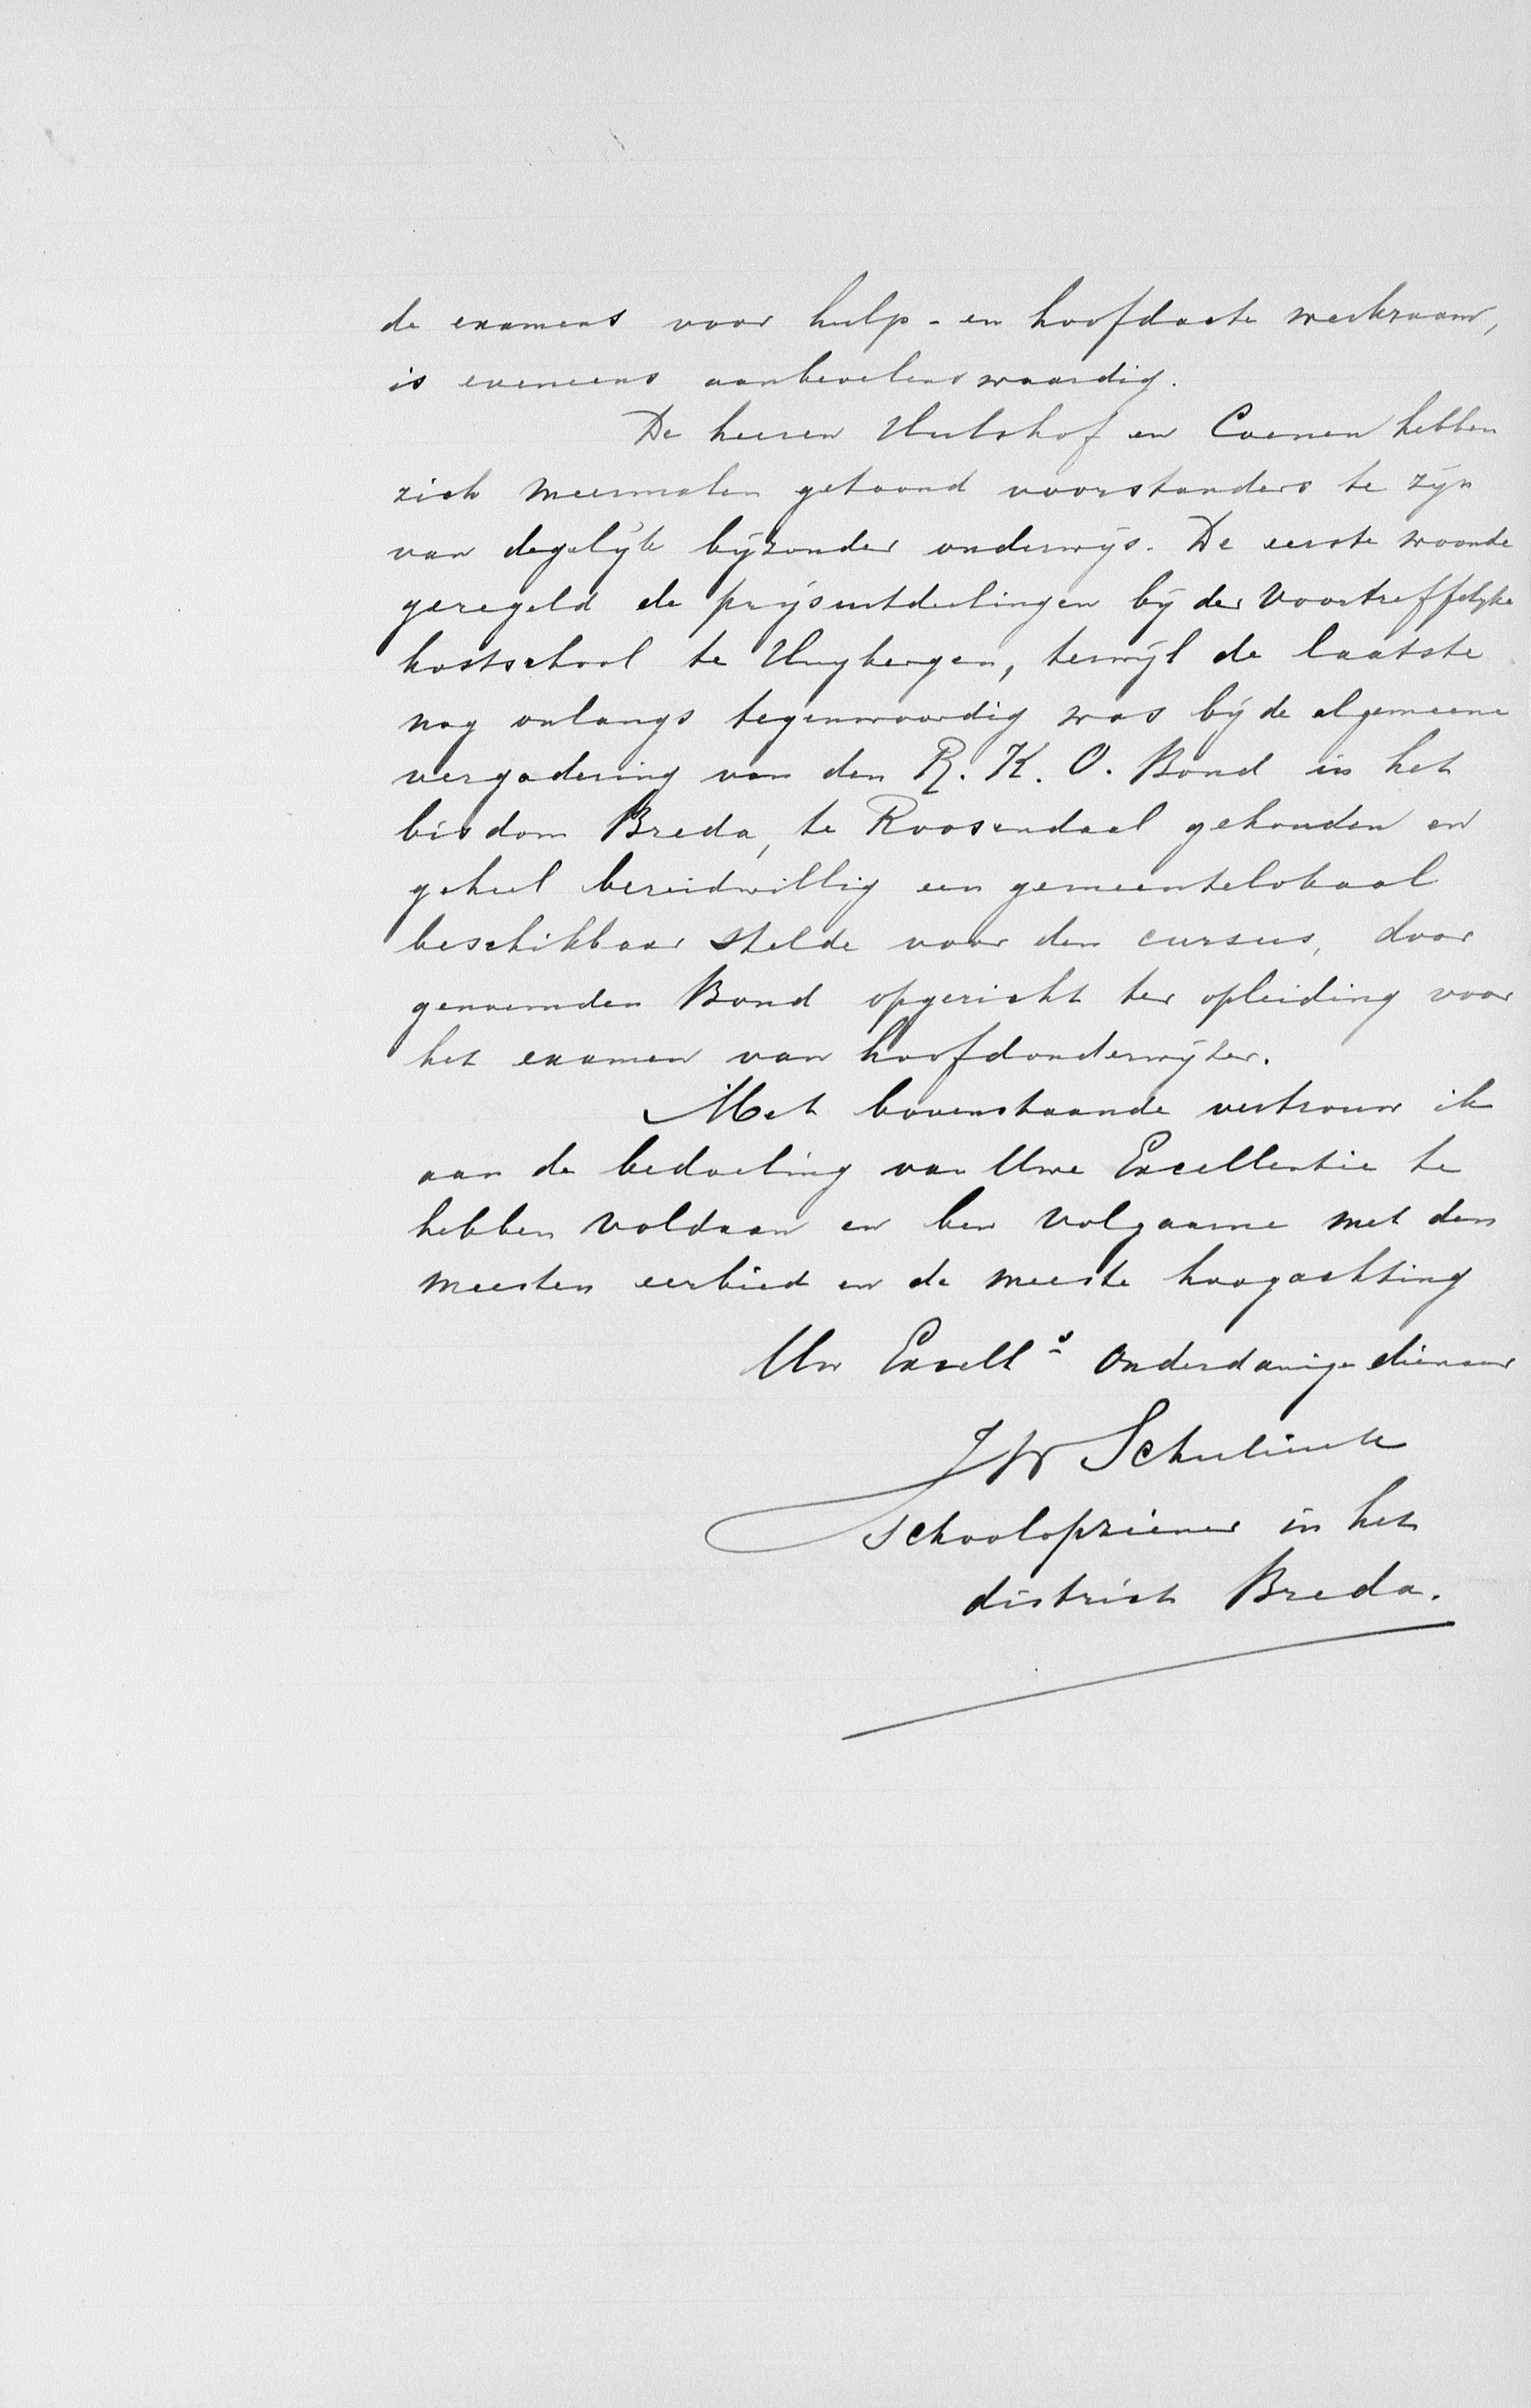 de examens voor hulp- en hoofdacte werkzaam,
is eveneens aanbevelenswaardig.
De heeren Hulshof en Coenen hebben
zich meermalen getoond voorstanders te zijn
van degelijk bijzonder onderwijs. De eerste woonde
geregeld de prijsuitdeelingen bij der voortreffelijke
kostschool te Huybergen, terwijl de laatste
nog onlangs tegenwoordig was bij de algemeene
vergadering van den R. K. O. Bond in het
bisdom Breda, te Roosendaal gehouden en
geheel bereidwillig een gemeentelokaal
beschikbaar stelde voor den cursus, door
genoemden Bond opgericht ter opleiding voor
het examen van hoofdonderwijzer.
Met bovenstaande vertrouw ik
aan de bedoeling van Uwe Excellentie te
hebben voldaan en ben volgaarne met den
meesten eerbied en de meeste hoogachting
Uw Excell.s onderdanige dienaar
JW Schulinck
schoolopziener in het
district Breda.